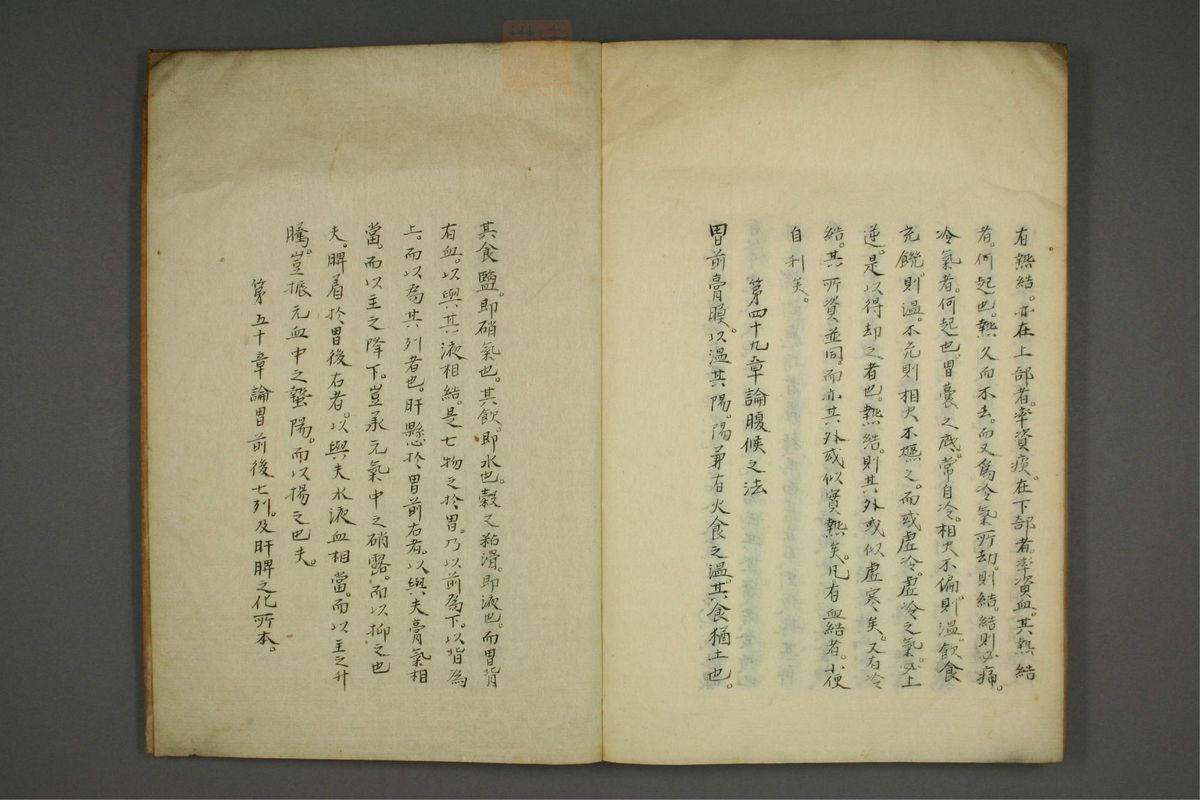 有熱結。亦在上部者。率資痰。在下部者。率資血。其熱結
者。何起也。熱久而不去。而又爲冷氣所劫。則結。結則必痛。
冷氣者。何起也。胃囊之底。常自冷。相火不偏。則溫。飲食
充饒。則溫。不充則相火不摳之。而或虛冷虛冷之氣。必上
逆。是以得却之者也。熱結。則其外或似虛寒矣。又有冷
結。其所資並同。而亦其外或似實熱矣。凡有血結者。小便
自利矣。
第四十九章論腹候之法
胃前膏膜。以溫其陽。陽兼有火食之溫。其食猶土也。
其食鹽。即硝氣也。其飲。即水也。穀之粘滑。即液也。而胃背
有血。以與其液相結。是七物之於胃。乃以前爲下。以背爲
上。而以爲其列者也。肝懸於胃前右者。以與夫膏氣相
當。而以主之降下。豈承元氣中之硝露。而以抑之也
夫。脾着於胃後右者。以與夫水液血相當。而以主之升
騰。豈振元血中之蠻陽。而以揚之也夫。
第五十章論胃前後七列。及肝脾之化所本。